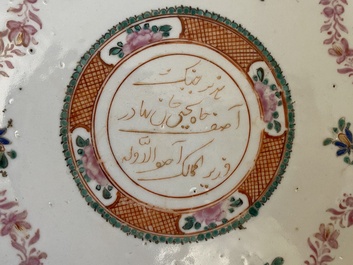 هزبر جنگ
آصف جاه یحیی خان بهادر
وزیر الممالک آصف الدوله